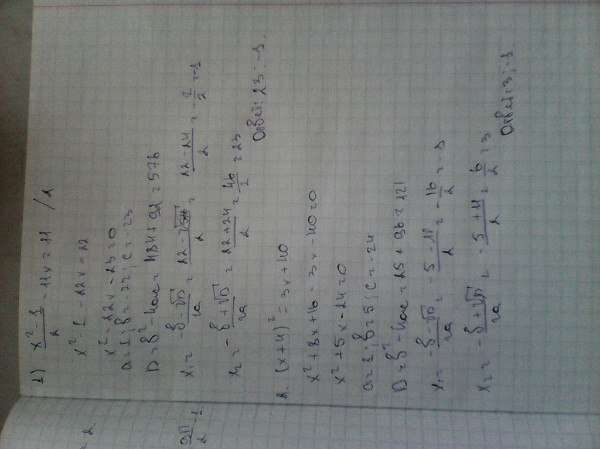 1) (x²-1)/2 - 11x = 11 /2
x² - 1 - 22x = 22
x² - 22x - 23 = 0
a=1; b=-22; c=-23
D=b²-4ac=484+92=576
x₁ = (-b-√D)/2a = (22-√576)/2 = (22-24)/2 = -2/2 = -1
x₂ = (-b+√D)/2a = (22+24)/2 = 46/2 = 23
Ответ: 23; -1.
2. (x+4)² = 3x+40
x²+8x+16-3x-40=0
x²+5x-24=0
a=1; b=5; c=-24
D=b²-4ac=25+96=121
x₁ = (-b-√D)/2a = (-5-11)/2 = -16/2 =
x₂ = (-b+√D)/2a = (-5+11)/2 = 6/2 = 3
Ответ: 3;